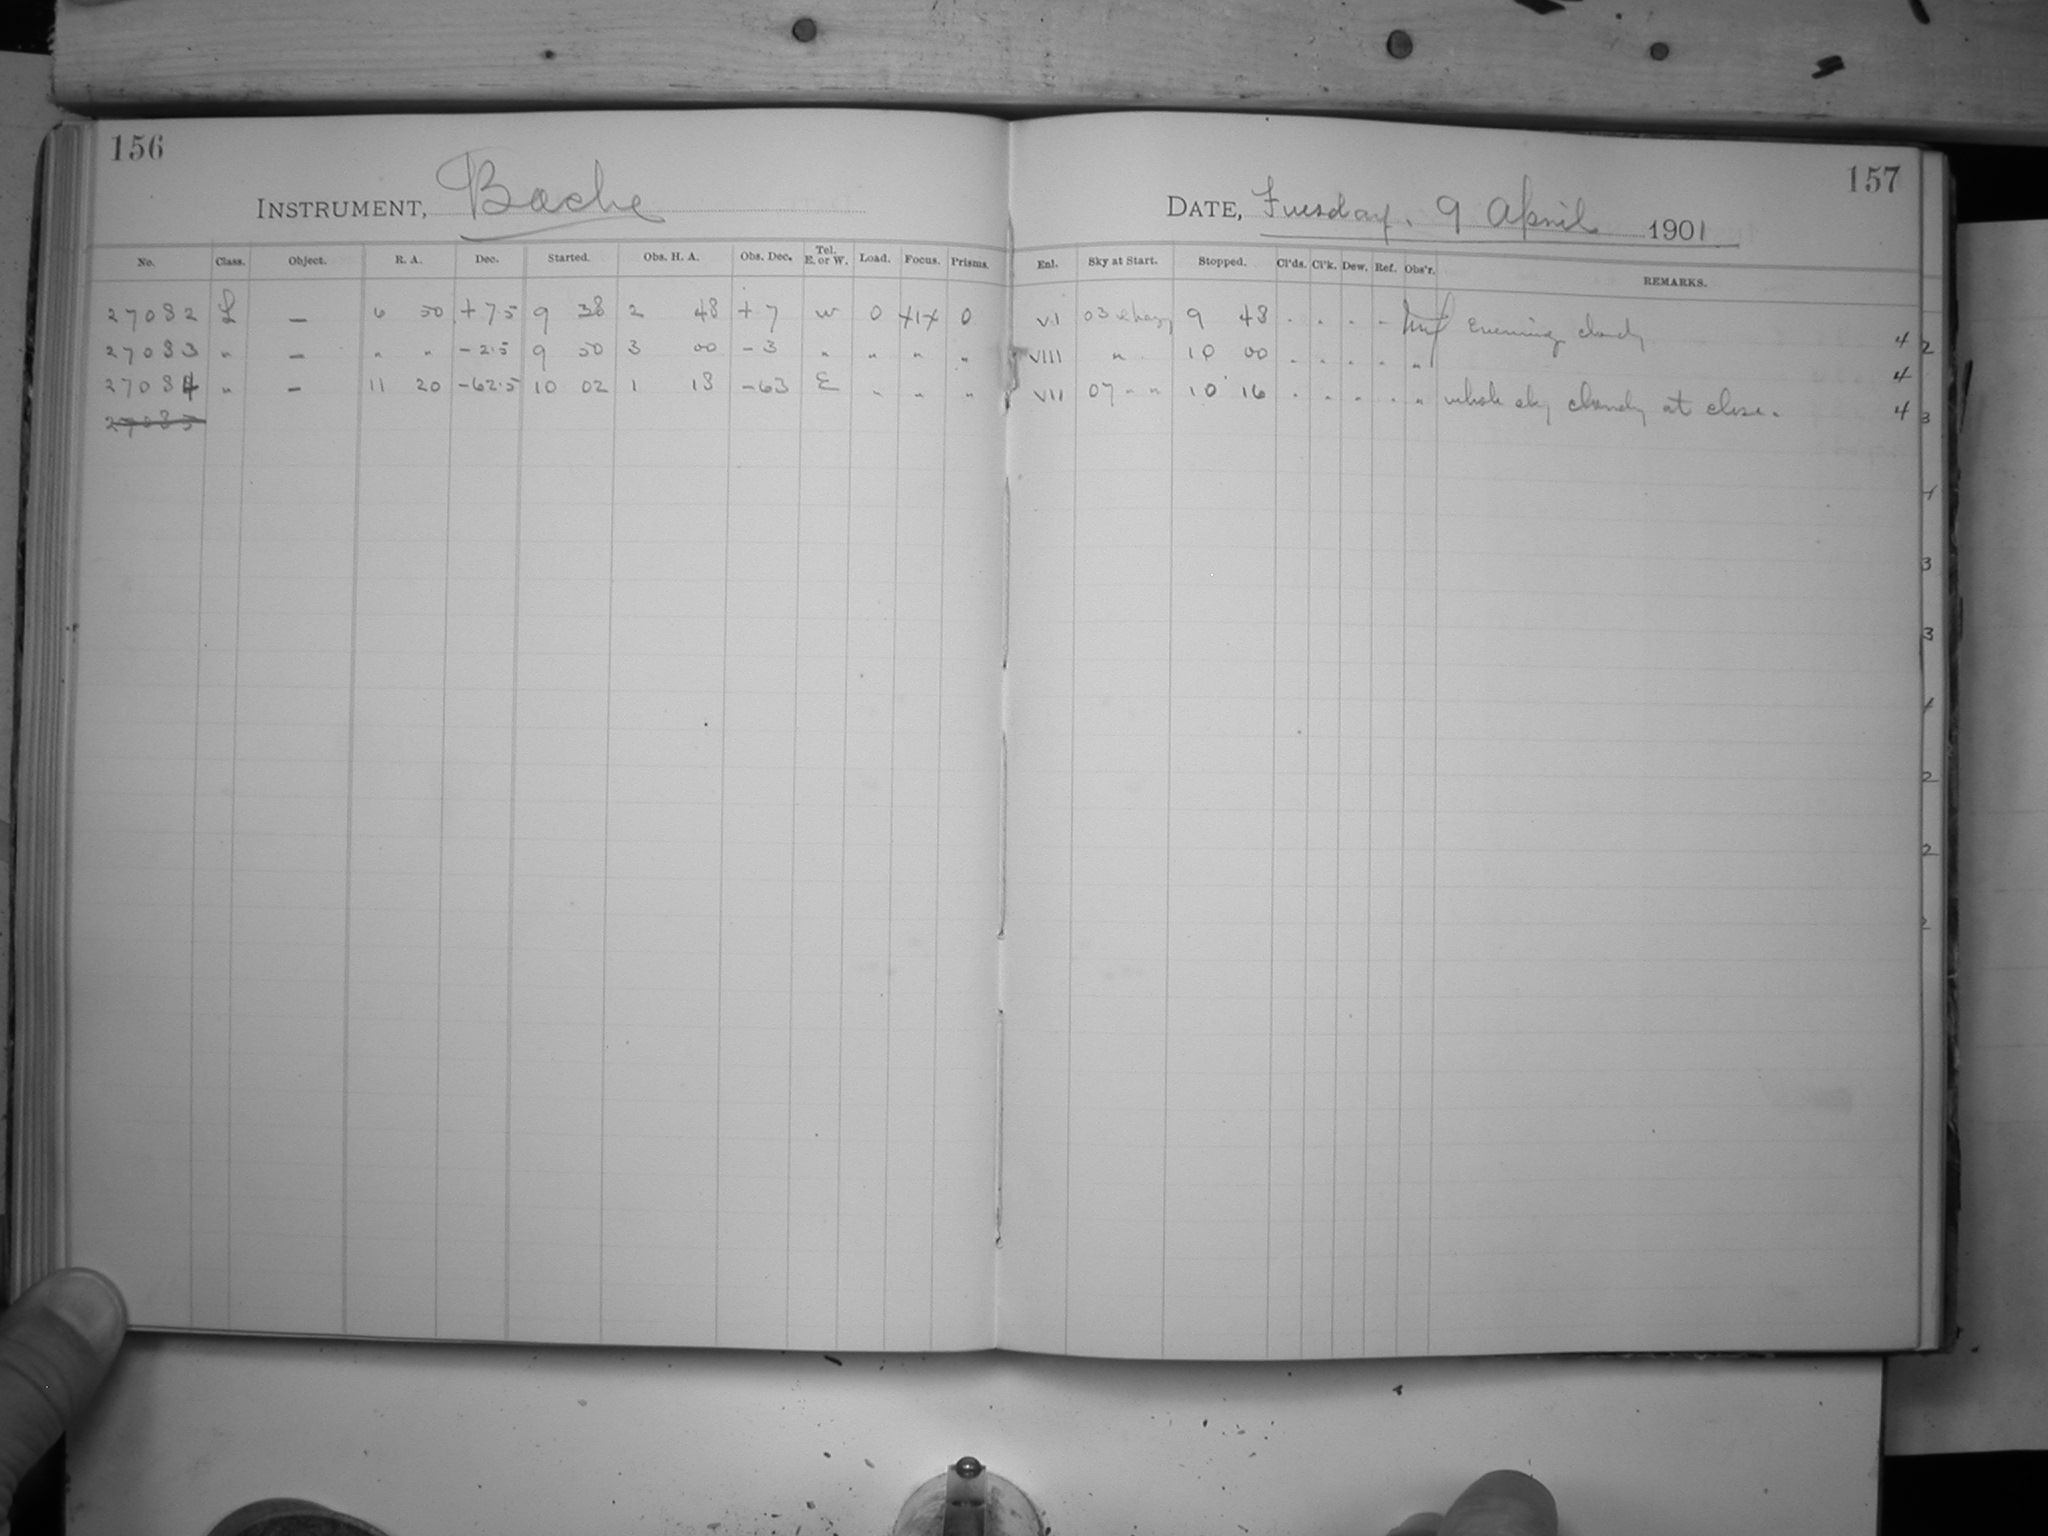 156
INSTRUMENT, Bache
No. Class. Object. R. A. Dec. Started. Obs. H. A. Obs. Dec. Tel. E. or W. Load. Focus. Prisms.
27082 L — 6 50 +7.5 9 38 2 48 +7 W 0 0
27083 " — " " -2.5 9 50 3 00 -3 " " " "
27084 " — 11 20 -62.5 10 02 1 18 -63 E " " "
27085
157
DATE, Tuesday. 9 April 1901
Enl. Sky at Start. Stopped. Cl'ds. Cl'k. Dew. Ref. Obs'r. REMARKS.
VI 03 & hazy 9 48 . . . - Evening cloudy 4
VIII " 10 00 . . . . " 4
VII 07 " " 10 16 . . . . " whole sky cloudy at close. 4
2
3
3
3
2
2
2